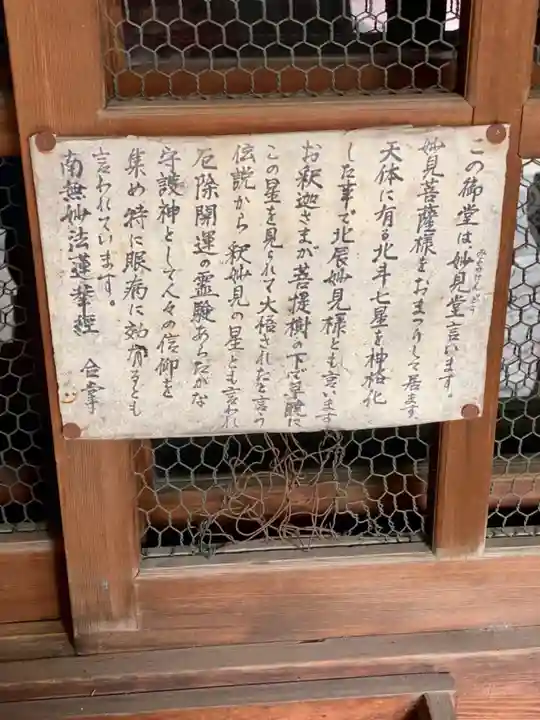 この御堂は妙見堂言います。
みょうけんどう
妙見菩薩様をおまつりして居ます。
天体に有る北斗七星を神格化
した事で北辰妙見様とも言います
お釈迦さまが菩提樹の下で早暁に
この星を見られて大悟されたと言う
伝説から釈妙見の星とも言われ
厄除開運の霊験あらたがな
守護神として人々の信仰を
集め特に眼病に効有るとも
言われています。
南無妙法蓮華経 合掌